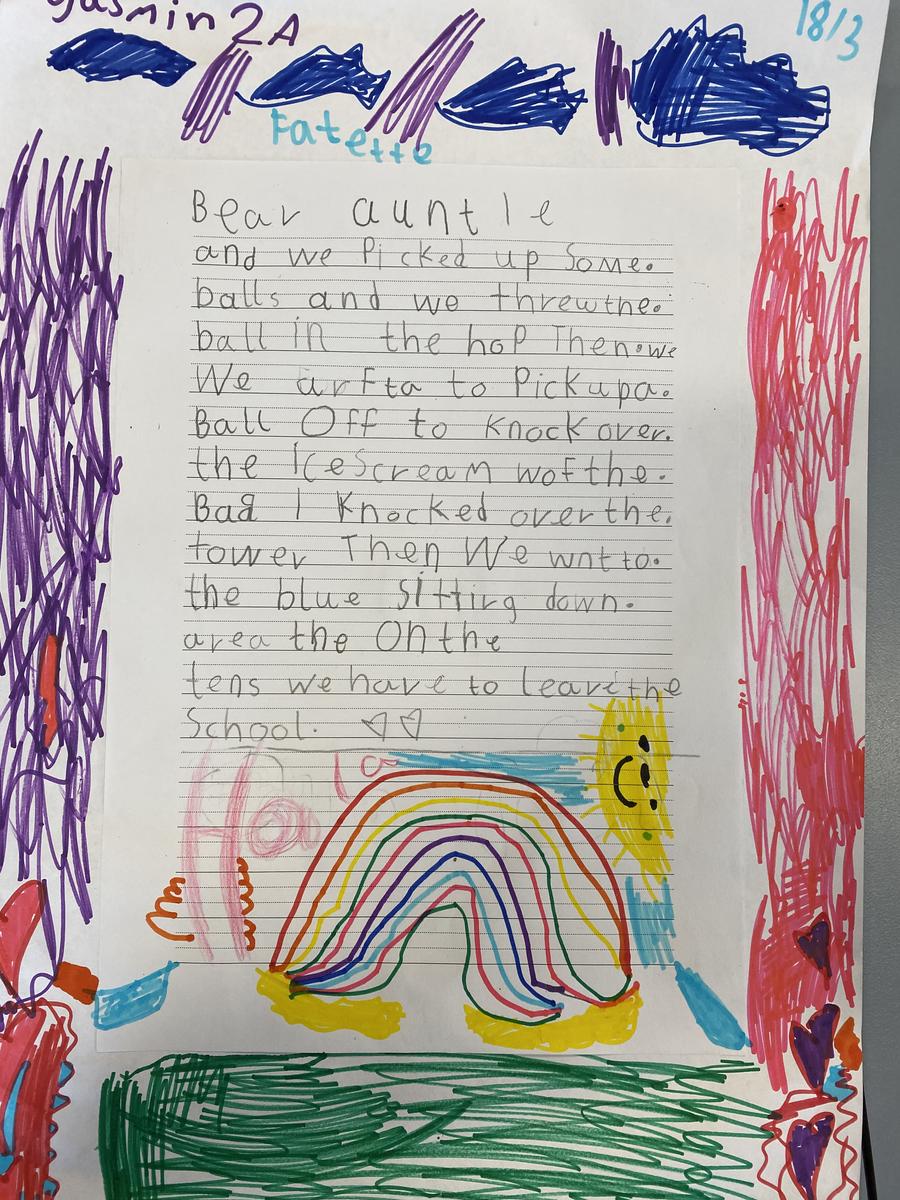 Yasmin 2A
18/3
Fatette
Bear auntie
and we Picked up Some.
balls and we threwthe.
ball in the hop Then.we
We arfta to Pickupa.
Ball Off to Knock over.
the IceScream wofthe.
Bag I Knocked over the.
tower Then We wnt to.
the blue Sitting down.
area the On the
tens we have to leavethe
School.
Ha